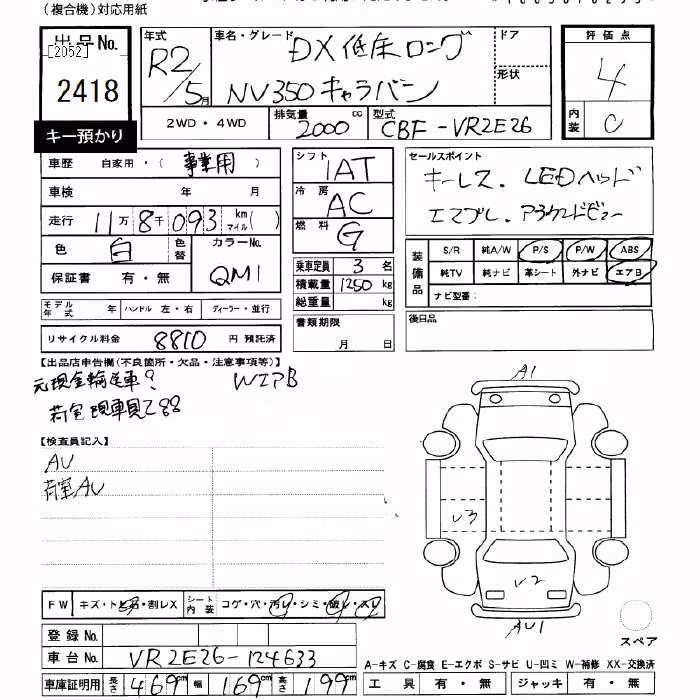 (複合機)対応用紙
出品No.
[2052]
2418
キー預かり
年式 R2/5月
車名・グレード DX低床ロング
NV350キャラバン
ドア
形状
評価点
4
内装 C
2WD・4WD
排気量 2000 cc
型式 CBF-VR2E26
車歴 自家用・(事業用)
車検 年 月
走行 11万8千093 km マイル( )
色 白
色替
カラーNo.
QM1
保証書 有・無
シフト IAT
冷房 AC
燃料 G
乗車定員 3 名
積載量 1250 kg
総重量 kg
セールスポイント
キーレス. LEDヘッド
エマブレ. アラウンドビュー
装備品
S/R 純A/W P/S P/W ABS
純TV 純ナビ 革シート 外ナビ エアB
ナビ型番:
モデル年式 年 ハンドル 左・右 ディーラー・並行
リサイクル料金 8810 円 預託済
書類期限
月 日
後日品
【出品店申告欄(不良箇所・欠品・注意事項等)】
元現金輸送車? WエアB
【検査員記入】
AU
荷室AU
A1
U3
U2
AU1
スペア
FW キズ・トビ石・割レX
シート内装 コゲ・穴・汚レ・シミ・破レ・スレ
登録No.
車台No. VR2E26-124633
車庫証明用 長さ 469cm 幅 169cm 高さ 199cm
A-キズ C-腐食 E-エクボ S-サビ U-凹ミ W-補修 XX-交換済
工具 有・無 ジャッキ 有・無